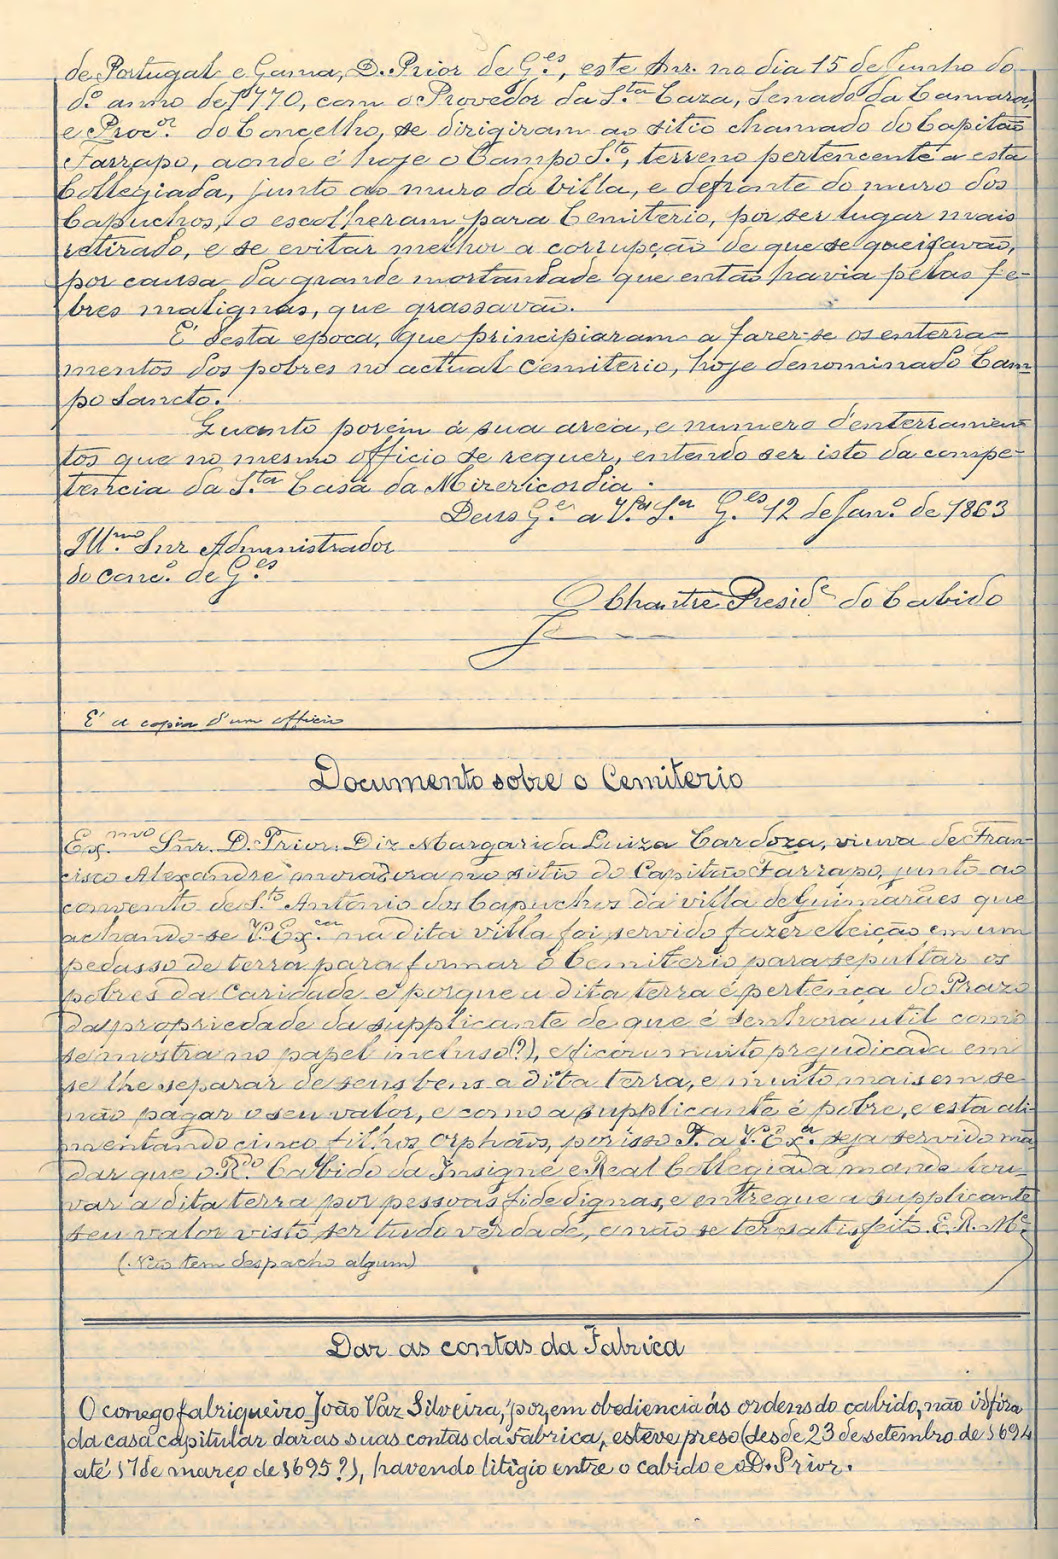 de Portugal e Gama, D. Prior de G.es, este Snr. no dia 15 de Junho do
d.º anno de 1770, com o Provedor da S.ta Caza, Senado da Camara,
e Proc.or do Concelho, se dirigiram ao sitio chamado do Capitão
Farrapo, aonde é hoje o Campo S.to, terreno pertencente a esta
Collegiada, junto ao muro da Villa, e defronte do muro dos
Capuchos, o escolheram para Cemiterio, por ser lugar mais
retirado, e se evitar melhor a corrupção de que se queixavão,
por causa da grande mortandade que então havia pelas fe-
bres malignas, que grassavão.
É desta epoca, que principiaram a fazer-se os enterra-
mentos dos pobres no actual Cemiterio, hoje denominado Cam-
po Sancto.
Quanto porem á sua area, e numero d'enterramen-
tos que no mesmo officio se requer, entendo ser isto da compe-
tencia da S.ta Casa da Misericordia.
Deus G.e a V.ª S.ª G.es 12 de Jan.º de 1863
Ill.mo Snr Administrador
do conc.º de G.es
O Chantre Presid.e do Cabido
É a copia d'um officio
Documento sobre o Cemiterio
Ex.mo Snr. D. Prior. Diz Margarida Luiza Cardoza, viuva de Fran-
cisco Alexandre moradora no sitio do Capitão Farrapo, junto ao
convento de S.to António dos Capuchos da villa de Guimarães que
achando-se V. Ex.cia na dita villa foi servido fazer eleição em um
pedasso de terra para formar o Cemiterio para sepultar os
pobres da Caridade e porque a dita terra é pertença do Prazo
da propriedade da supplicante de que é senhora util como
se mostra no papel incluso (?), e ficou muito prejudicada em
se lhe separar de seus bens a dita terra, e muito mais em se
não pagar o seu valor, e como a supplicante é pobre, e está ali-
mentando cinco filhos orphãos, por isso P. a V. Ex.ª seja servido mã-
dar que o R.do Cabido da Insigne e Real Collegiada mande lou-
var a dita terra por pessoas fidedignas, e entregue a supplicante
seu valor visto ser tudo verdade, e não se ter satisfeito. E. R. M.ce
(Não tem despacho algum)
Dar as contas da Fabrica
O conego fabriqueiro João Vaz Silveira, por, em obediencia ás ordens do cabido, não ir fóra
da casa capitular dar as suas contas da Fabrica, esteve preso (desde 23 de setembro de 1694
até 17 de março de 1695?), havendo litigio entre o cabido e o D. Prior.